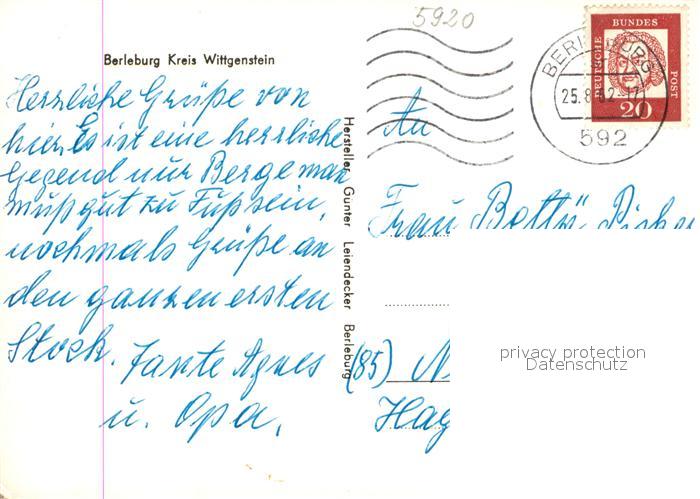 5920
Berleburg Kreis Wittgenstein
Herzliche Grüße von
hier. Es ist eine herrliche
Gegend nur Berge man
muß gut zu Fuß sein,
nochmals Grüße an
den ganzen ersten
Stock. Tante Agnes
u. Opa.
Hersteller Gunter Leiendecker Berleburg
DEUTSCHE BUNDES POST
20
BERLEBURG
25.8.62-17
592
An
Frau
(85) N
Hag
privacy protection
Datenschutz